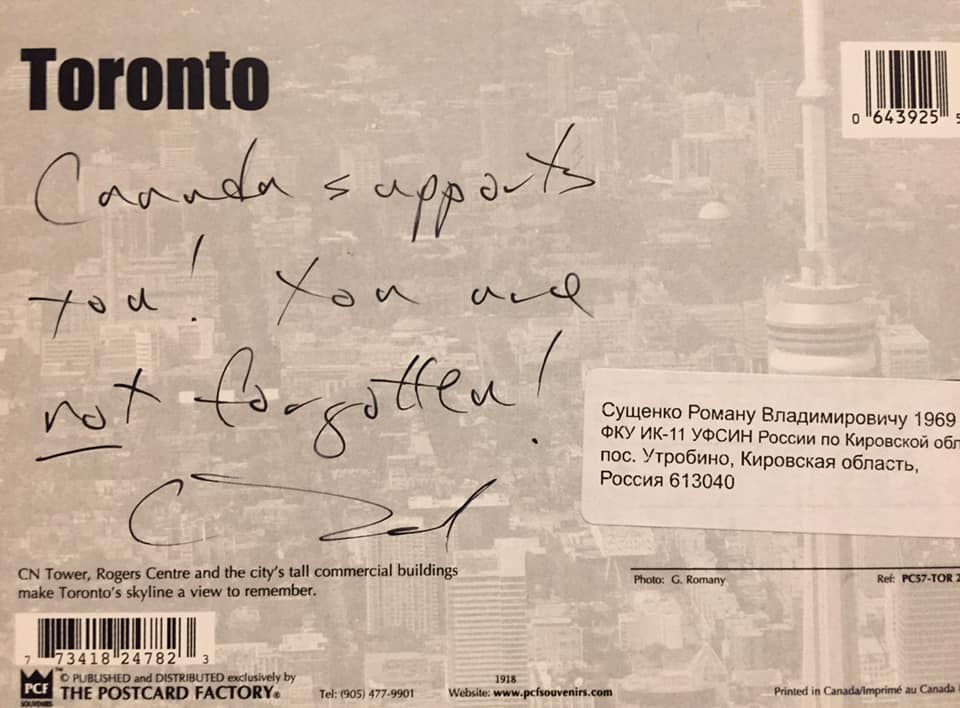 Toronto
0 643925 5
Canada supports
you! You are
not forgotten!
Сущенко Роману Владимировичу 1969
ФКУ ИК-11 УФСИН России по Кировской обл
пос. Утробино, Кировская область,
Россия 613040
CN Tower, Rogers Centre and the city's tall commercial buildings
make Toronto's skyline a view to remember.
Photo: G. Romany
Ref: PC57-TOR 2
7 73418 24782 3
PCF
SOUVENIRS
© PUBLISHED and DISTRIBUTED exclusively by
THE POSTCARD FACTORY®
Tel: (905) 477-9901
1918
Website: www.pcfsouvenirs.com
Printed in Canada/Imprimé au Canada